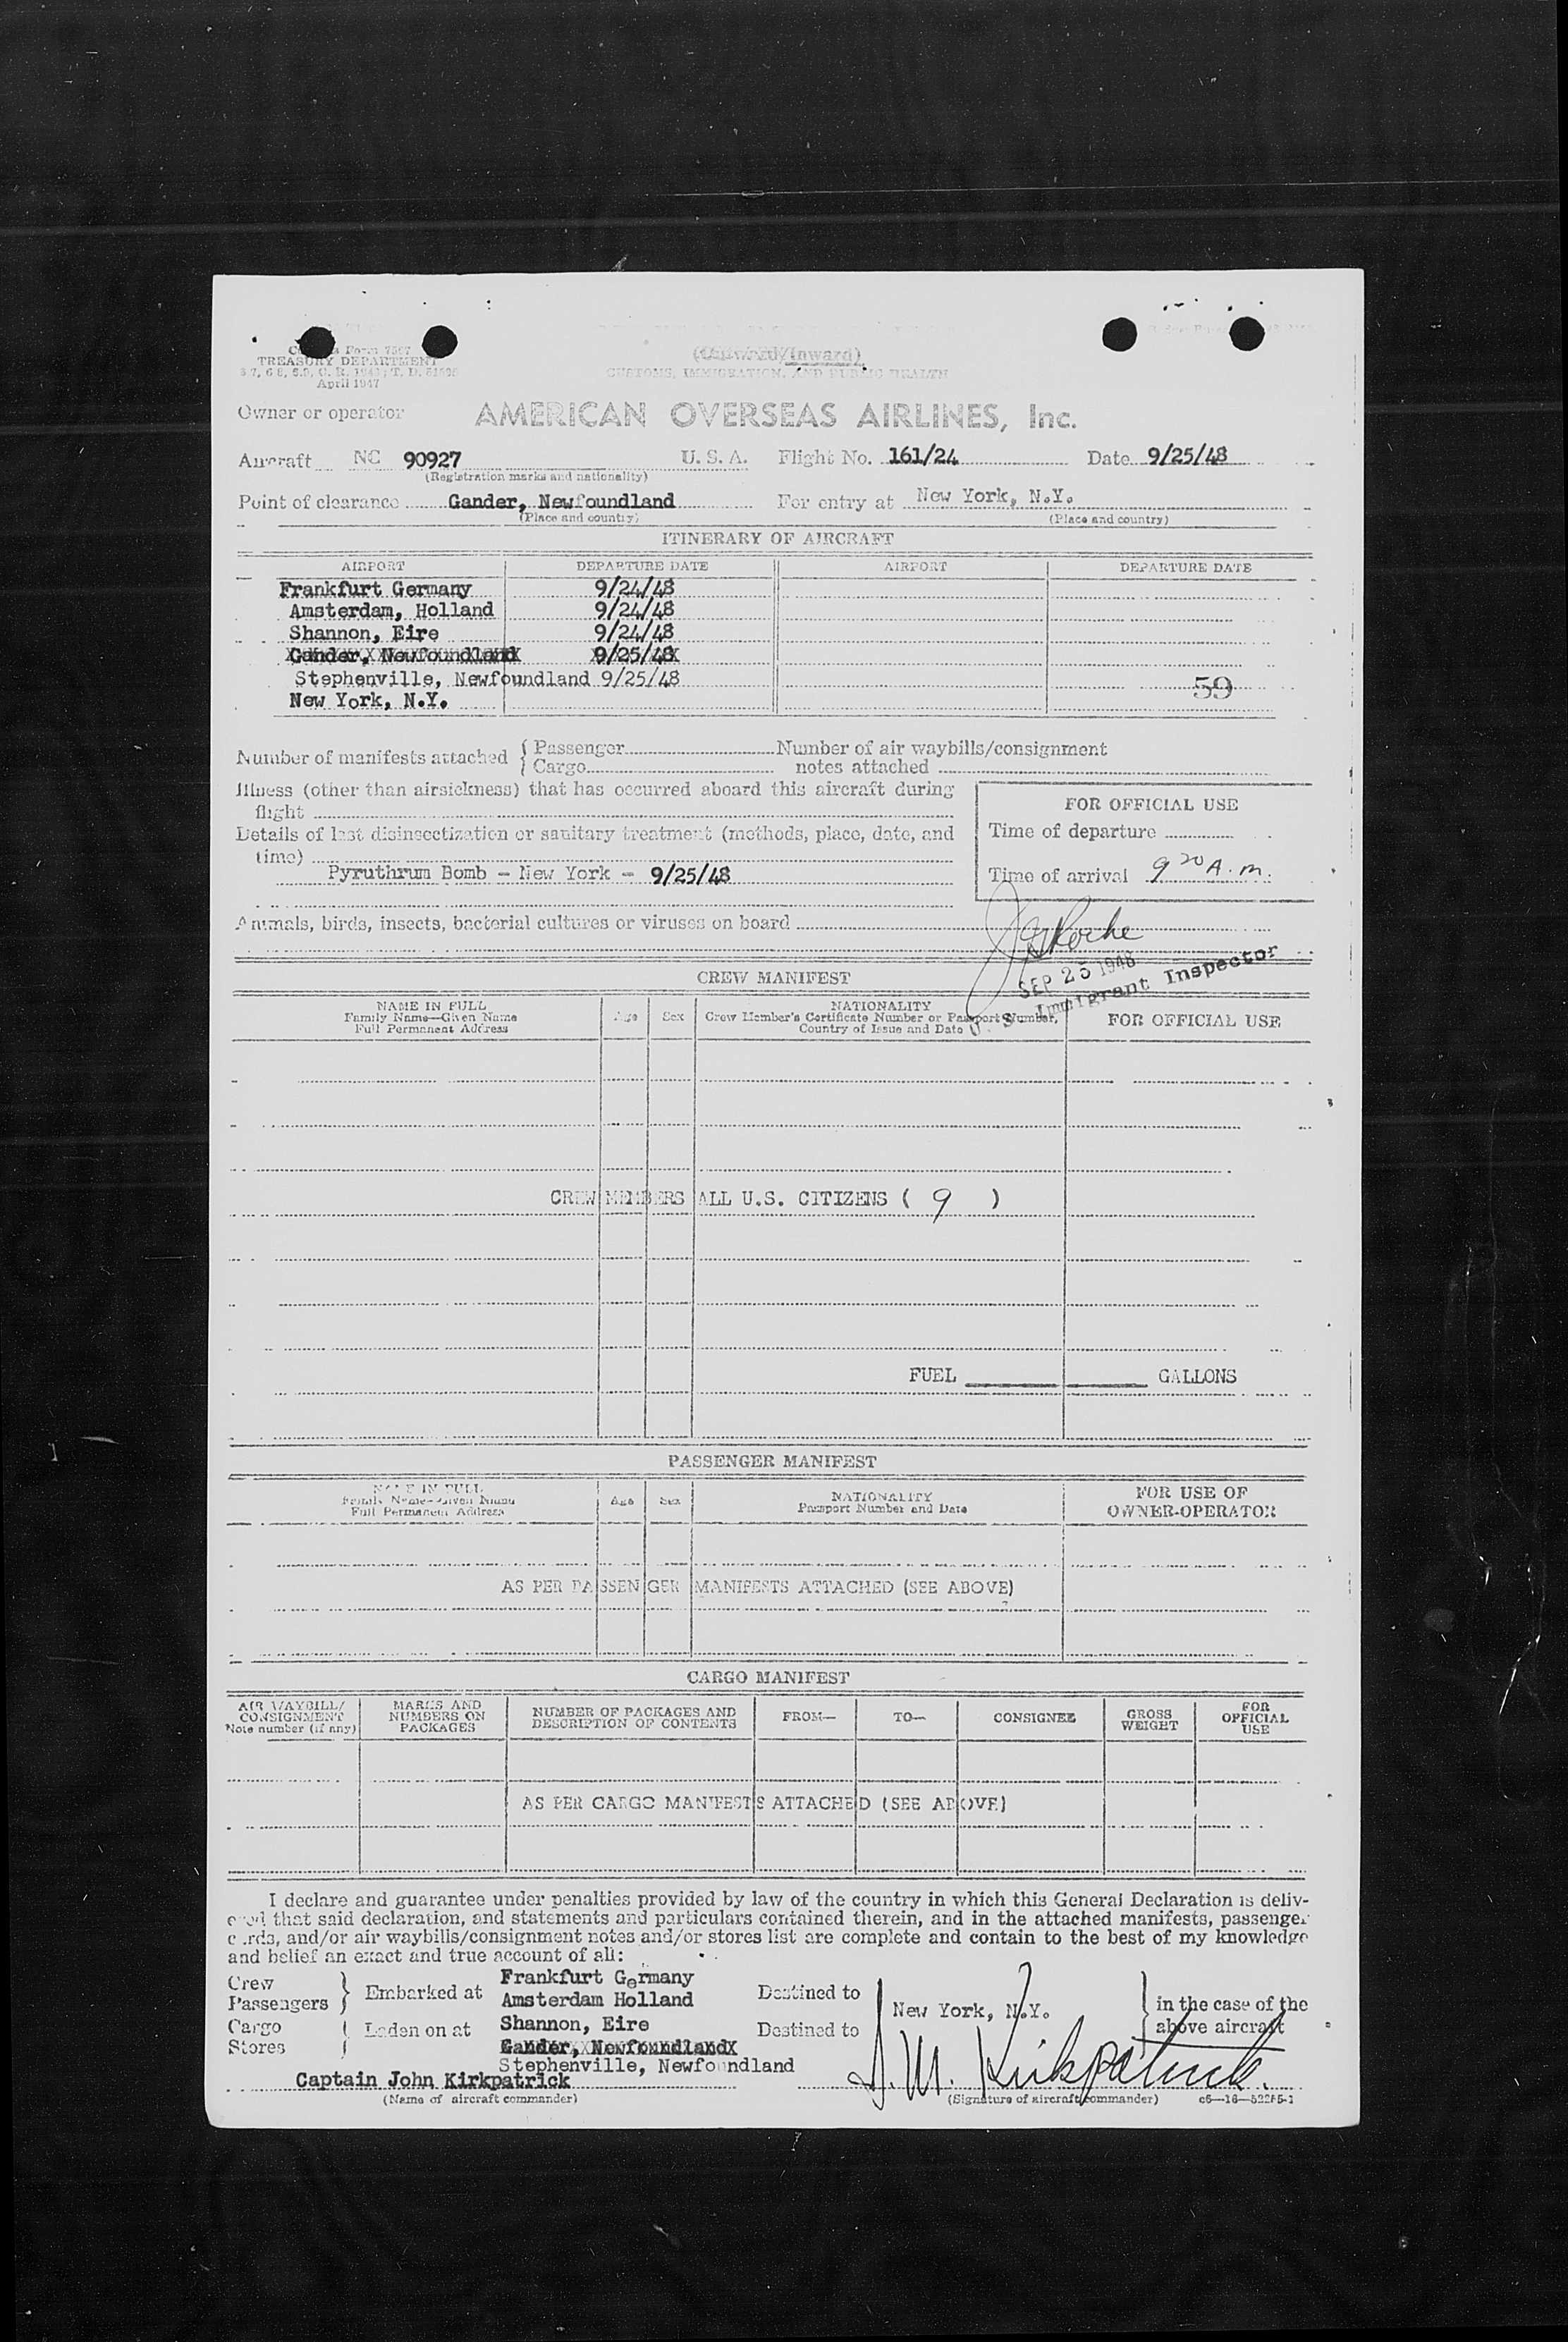 Customs Form 7507
TREASURY DEPARTMENT
April 1947
(Outward/Inward)
CUSTOMS, IMMIGRATION, AND PUBLIC HEALTH
Owner or operator AMERICAN OVERSEAS AIRLINES, Inc.
Aircraft NC 90927 U. S. A. Flight No. 161/24 Date 9/25/48
(Registration marks and nationality)
Point of clearance Gander, Newfoundland For entry at New York, N.Y.
(Place and country) (Place and country)
ITINERARY OF AIRCRAFT
AIRPORT DEPARTURE DATE AIRPORT DEPARTURE DATE
Frankfurt Germany 9/24/48
Amsterdam, Holland 9/24/48
Shannon, Eire 9/24/48
Gander, Newfoundland 9/25/48
Stephenville, Newfoundland 9/25/48
59
New York, N.Y.
Number of manifests attached { Passenger Number of air waybills/consignment
Cargo notes attached
Illness (other than airsickness) that has occurred aboard this aircraft during
flight
FOR OFFICIAL USE
Details of last disinsectization or sanitary treatment (methods, place, date, and
Time of departure
time)
Pyruthrum Bomb - New York - 9/25/48
Time of arrival 9 20 A.m.
Animals, birds, insects, bacterial cultures or viruses on board
Roche
SEP 25 1948
U. S. Immigrant Inspector
CREW MANIFEST
NAME IN FULL
Family Name—Given Name
Full Permanent Address
Age Sex
NATIONALITY
Crew Member's Certificate Number or Passport Number,
Country of Issue and Date
FOR OFFICIAL USE
CREW MEMBERS ALL U.S. CITIZENS ( 9 )
FUEL GALLONS
PASSENGER MANIFEST
NAME IN FULL
Family Name—Given Name
Full Permanent Address
Age Sex
NATIONALITY
Passport Number and Date
FOR USE OF
OWNER-OPERATOR
AS PER PASSENGER MANIFESTS ATTACHED (SEE ABOVE)
CARGO MANIFEST
AIR WAYBILL/
CONSIGNMENT
Note number (if any)
MARKS AND
NUMBERS ON
PACKAGES
NUMBER OF PACKAGES AND
DESCRIPTION OF CONTENTS
FROM—
TO—
CONSIGNEE
GROSS
WEIGHT
FOR
OFFICIAL
USE
AS PER CARGO MANIFESTS ATTACHED (SEE ABOVE)
I declare and guarantee under penalties provided by law of the country in which this General Declaration is deliv-
ered that said declaration, and statements and particulars contained therein, and in the attached manifests, passenger
cards, and/or air waybills/consignment notes and/or stores list are complete and contain to the best of my knowledge
and belief an exact and true account of all:
Crew
Passengers } Embarked at
Cargo
Stores } Laden on at
Frankfurt Germany
Amsterdam Holland
Shannon, Eire
Gander, Newfoundland
Stephenville, Newfoundland
Destined to
Destined to
New York, N.Y.
in the case of the
above aircraft
Captain John Kirkpatrick
J. M. Kirkpatrick.
(Name of aircraft commander) (Signature of aircraft commander)